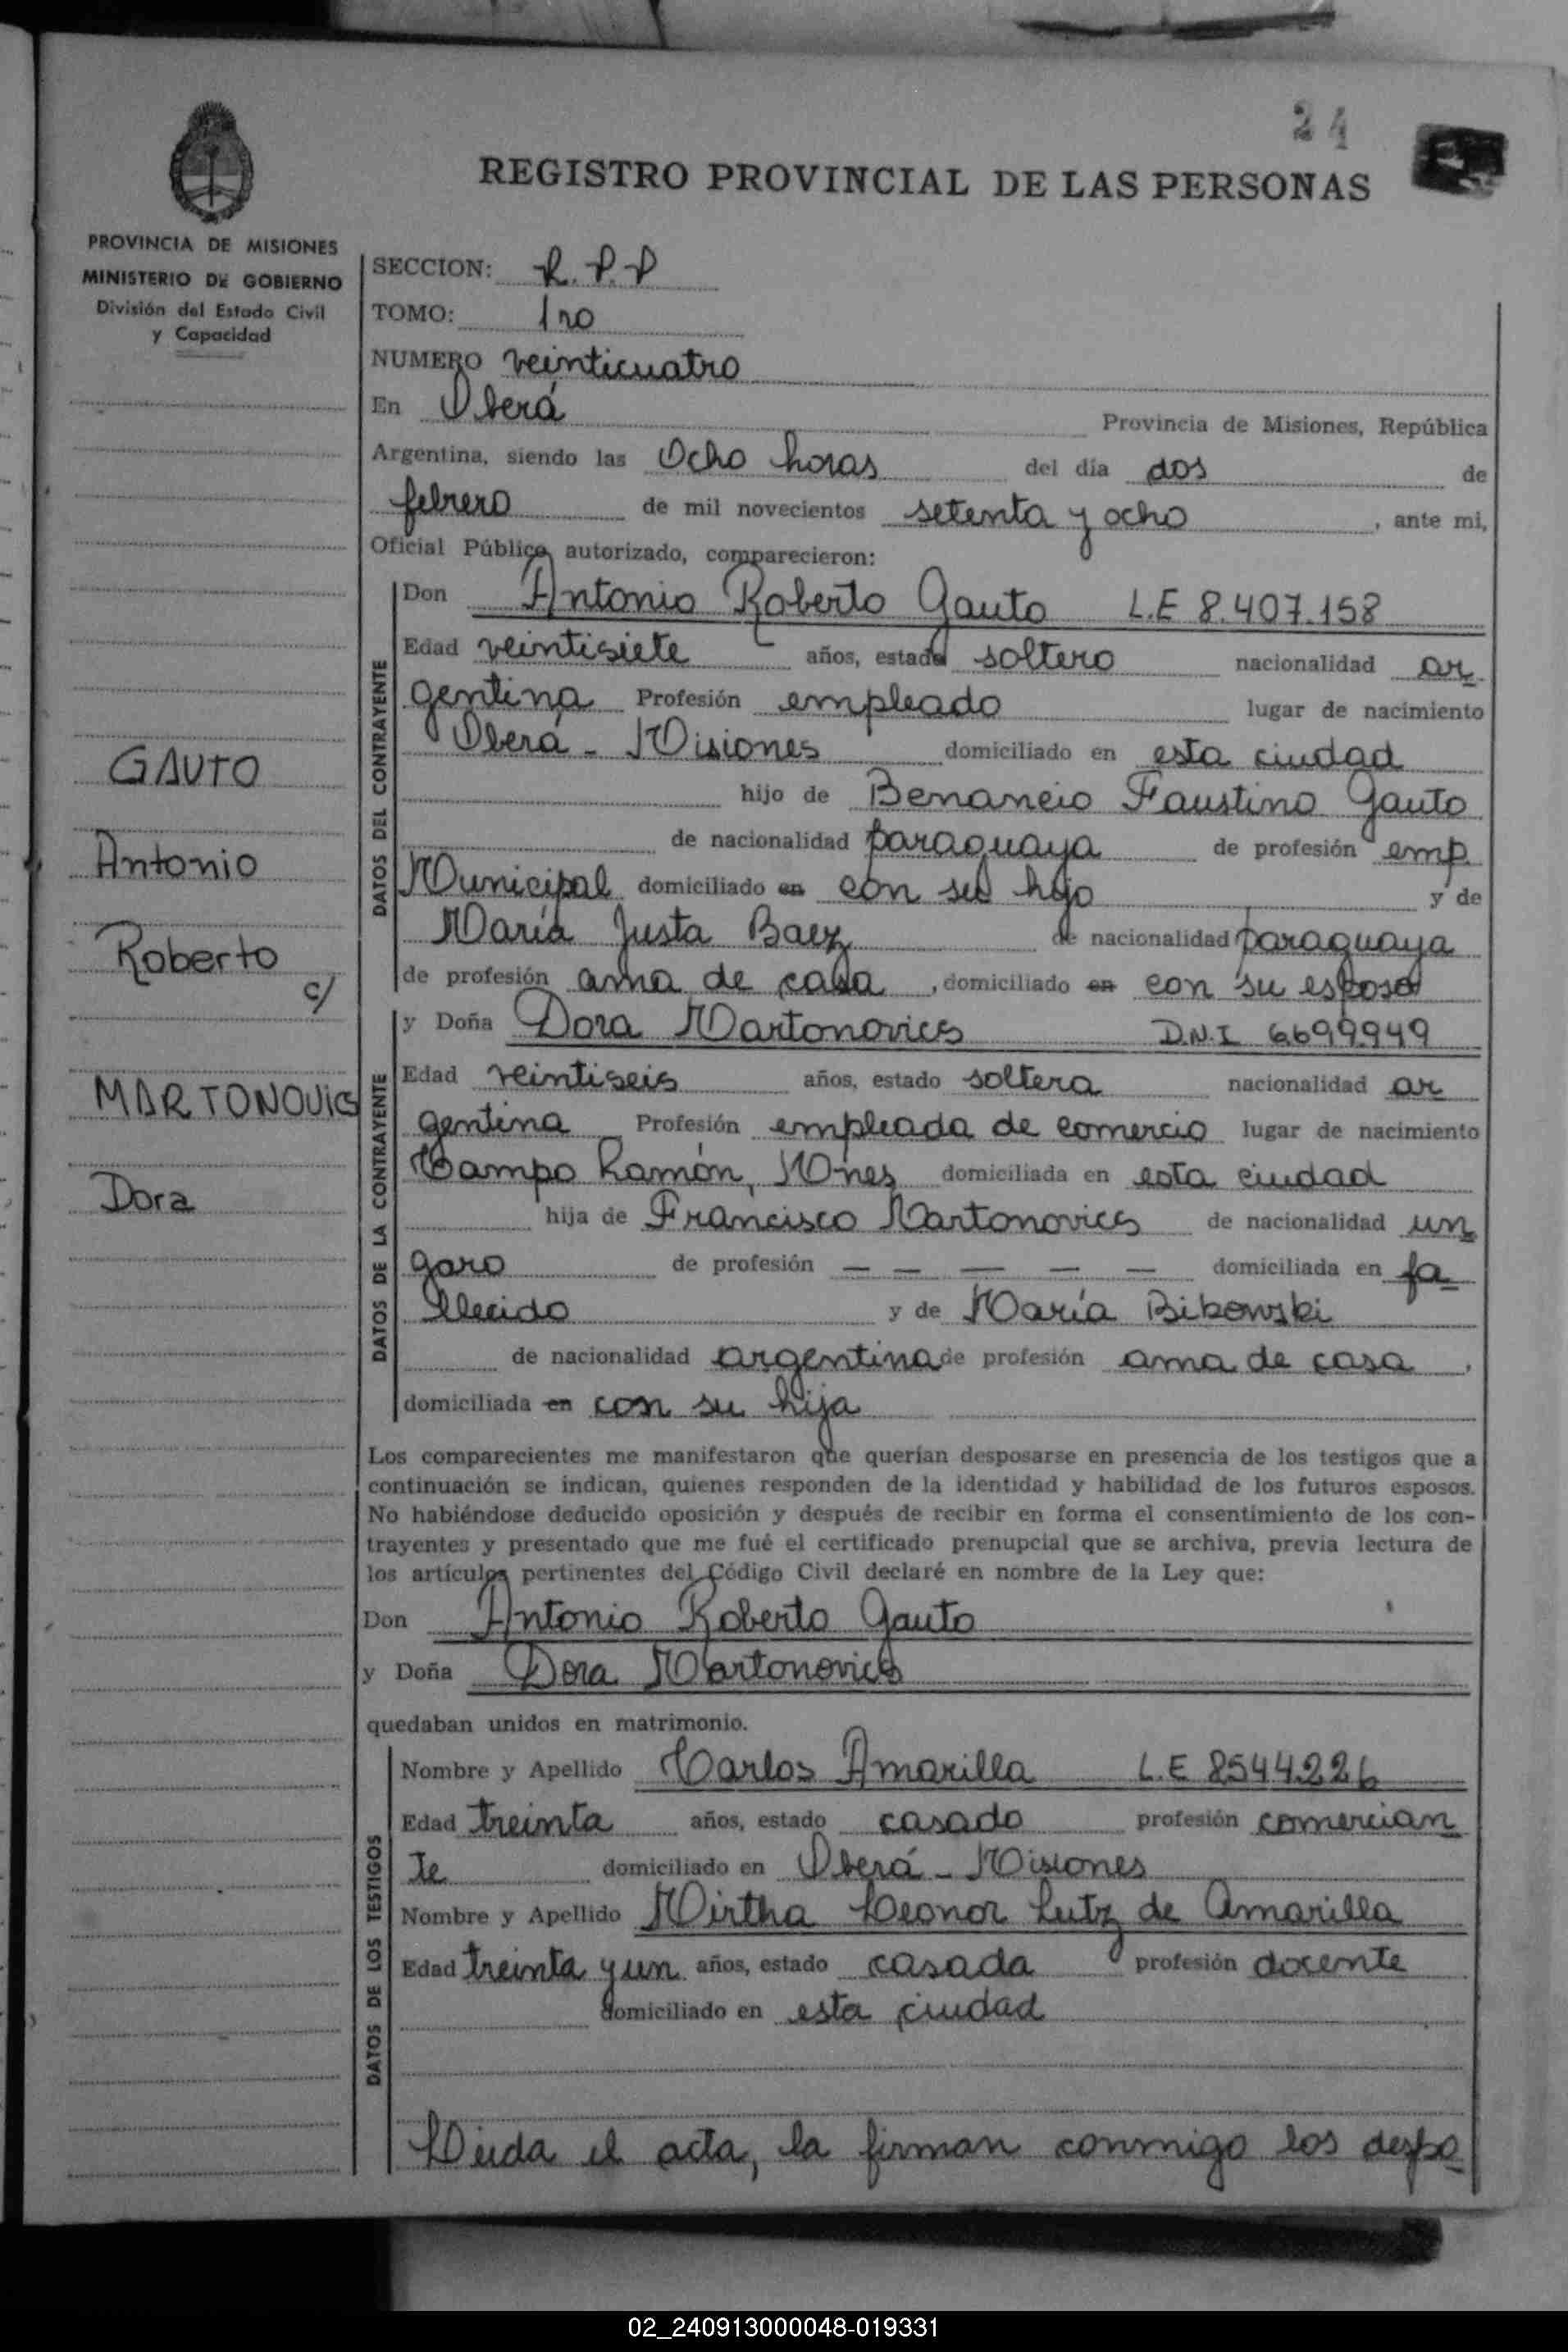 24
REGISTRO PROVINCIAL DE LAS PERSONAS
PROVINCIA DE MISIONES
MINISTERIO DE GOBIERNO
División del Estado Civil
y Capacidad
GAUTO
Antonio
Roberto
c/
MARTONOVICS
Dora
SECCION: R.P.P
TOMO: 1ro
NUMERO veinticuatro
En Oberá Provincia de Misiones, República
Argentina, siendo las Ocho horas del día dos de
febrero de mil novecientos setenta y ocho, ante mi,
Oficial Público autorizado, comparecieron:
DATOS DEL CONTRAYENTE
Don Antonio Roberto Gauto L.E 8.407.158
Edad veintisiete años, estado soltero nacionalidad ar
gentina Profesión empleado lugar de nacimiento
Oberá - Misiones domiciliado en esta ciudad
hijo de Benancio Faustino Gauto
de nacionalidad paraguaya de profesión emp.
Municipal domiciliado en con su hijo y de
María Justa Baez de nacionalidad paraguaya
de profesión ama de casa, domiciliado en con su esposo
DATOS DE LA CONTRAYENTE
y Doña Dora Martonovics D.N.I 6699949
Edad veintiseis años, estado soltera nacionalidad ar
gentina Profesión empleada de comercio lugar de nacimiento
Campo Ramón, Mnes domiciliada en esta ciudad
hija de Francisco Martonovics de nacionalidad un
garo de profesión — — — — — domiciliada en fa
llecido y de María Bikowski
de nacionalidad argentina de profesión ama de casa,
domiciliada en con su hija
Los comparecientes me manifestaron que querían desposarse en presencia de los testigos que a
continuación se indican, quienes responden de la identidad y habilidad de los futuros esposos.
No habiéndose deducido oposición y después de recibir en forma el consentimiento de los con-
trayentes y presentado que me fué el certificado prenupcial que se archiva, previa lectura de
los artículos pertinentes del Código Civil declaré en nombre de la Ley que:
Don Antonio Roberto Gauto
y Doña Dora Martonovics
quedaban unidos en matrimonio.
DATOS DE LOS TESTIGOS
Nombre y Apellido Carlos Amarilla L.E 8544226
Edad treinta años, estado casado profesión comercian
te domiciliado en Oberá - Misiones
Nombre y Apellido Mirtha Leonor Lutz de Amarilla
Edad treinta y un años, estado casada profesión docente
domiciliado en esta ciudad
Leida el acta, la firman conmigo los despo
02_240913000048-019331